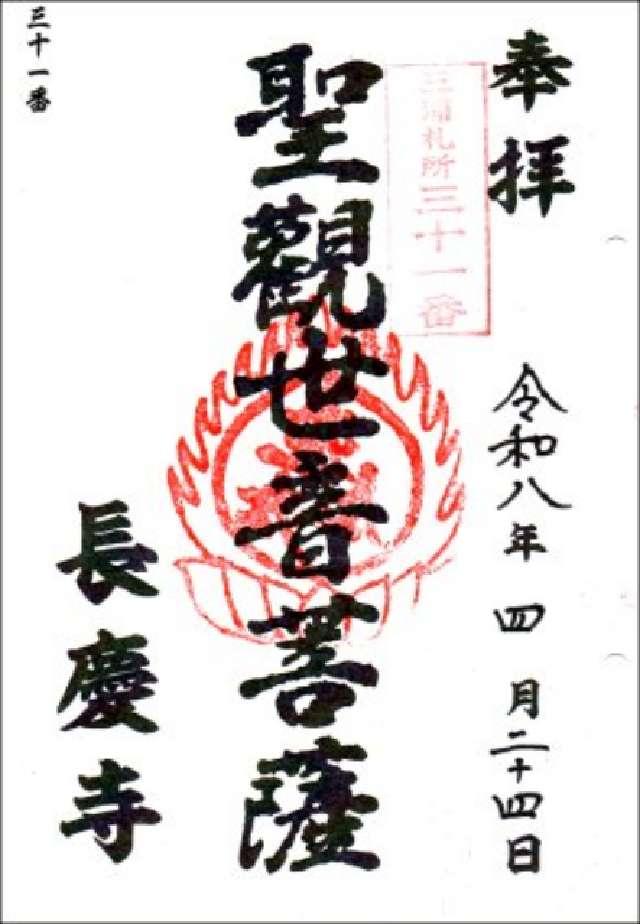 奉拝
令和八年四月二十四日
三浦札所三十一番
聖觀世音菩薩
長慶寺
三十一番